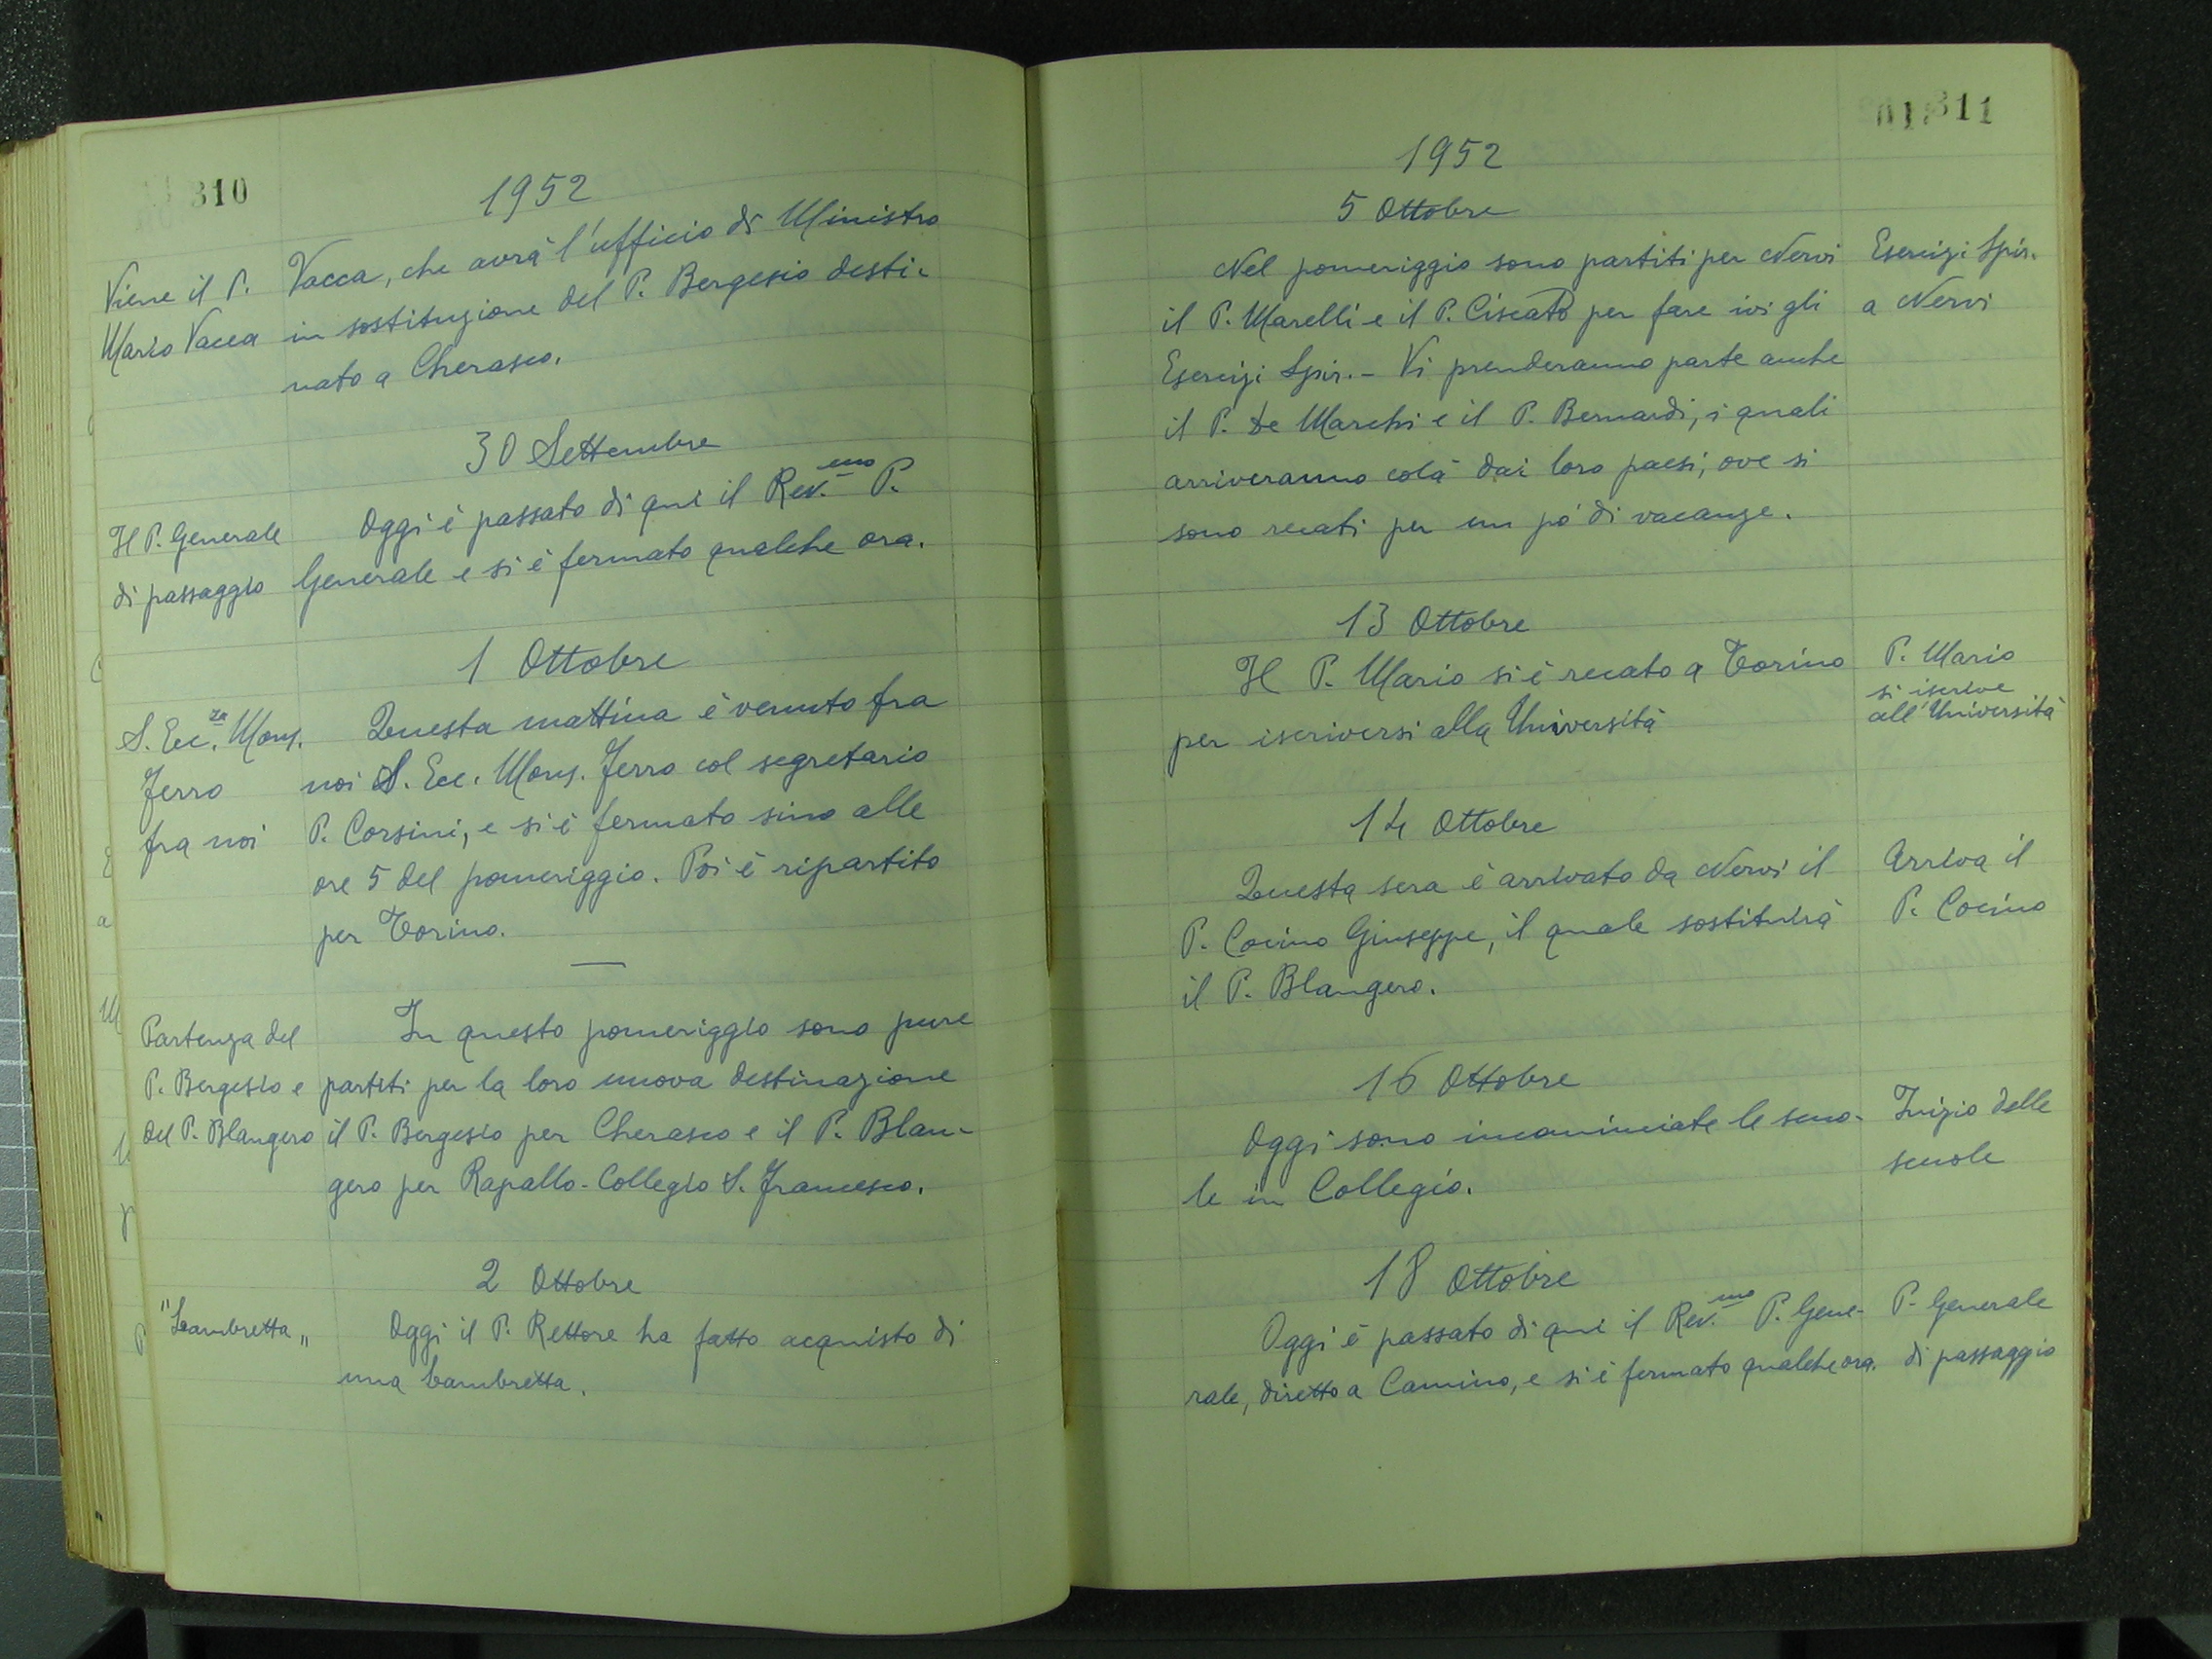 310
1952
Viene il P.
Mario Vacca
Vacca, che avrà l'ufficio di Ministro
in sostituzione del P. Bergesio desti-
nato a Cherasco.
30 Settembre
Il P. Generale
di passaggio
Oggi è passato di qui il Rev.mo P.
Generale e si è fermato qualche ora.
1 Ottobre
S. Ecc.za Mons.
Ferro
fra noi
Questa mattina è venuto fra
noi S. Ecc. Mons. Ferro col segretario
P. Corsini, e si è fermato sino alle
ore 5 del pomeriggio. Poi è ripartito
per Torino.
Partenza del
P. Bergesio e
del P. Blangero
In questo pomeriggio sono pure
partiti per la loro nuova destinazione
il P. Bergesio per Cherasco e il P. Blan-
gero per Rapallo-Collegio S. Francesco.
2 Ottobre
"Lambretta"
Oggi il P. Rettore ha fatto acquisto di
una Lambretta.
311
1952
5 Ottobre
Nel pomeriggio sono partiti per Nervi
il P. Marelli e il P. Ciscato per fare ivi gli
Esercizi Spir. - Vi prenderanno parte anche
il P. De Marchi e il P. Bernardi, i quali
arriveranno colà dai loro paesi, ove si
sono recati per un pò di vacanze.
Esercizi Spir.
a Nervi
13 Ottobre
Il P. Mario si è recato a Torino
per iscriversi alla Università
P. Mario
si iscrive
all'Università
14 Ottobre
Questa sera è arrivato da Nervi il
P. Cocino Giuseppe, il quale sostituirà
il P. Blangero.
Arriva il
P. Cocino
16 Ottobre
Oggi sono incominciate le scuo-
le in Collegio.
Inizio delle
scuole
18 Ottobre
Oggi è passato di qui il Rev.mo P. Gene-
rale, diretto a Camino, e si è fermato qualche ora.
P. Generale
di passaggio